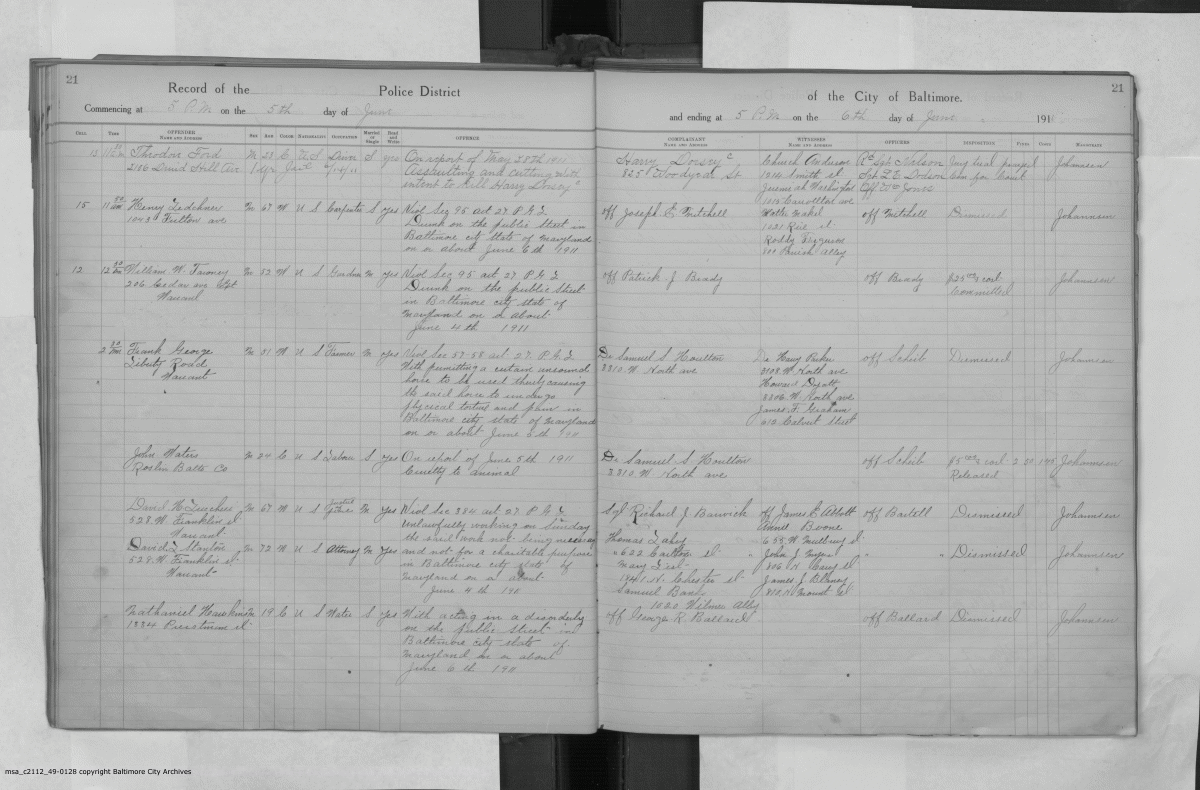 21
Record of the Police District
Commencing at 5 P.M on the 5th day of June
CELL TIME OFFENDER NAME AND ADDRESS SEX AGE COLOR NATIVITY OCCUPATION Married or Single Read and Write OFFENCE
13 Theodore Ford M 28 C U S Driver S yes On report of May 28th 1911
2106 Druid Hill Ave Assaulting and cutting with
intent to kill Harry Dorsey c
15 11 Henry Ledehner M 67 W U S Carpenter S yes Viol Sec 95 art 27 P G L
1043 Fulton ave Drunk on the public street in
Baltimore city state of Maryland
on or about June 6th 1911
12 12 William W. M 52 W U S Gardner M yes Viol Sec 95 art 27 P G L
206 Cedar ave Drunk on the public street
Warrant in Baltimore city state of
Maryland on or about
June 4th 1911
2 Frank George M 31 W U S Farmer M yes Viol Sec 57-58 art 27. P G L
Liberty Road With permitting a certain unsound
Warrant horse to be used thereby causing
the said horse to undergo
physical torture and pain in
Baltimore city state of Maryland
on or about June 5th 1911
John Waters M 24 C U S Labour S yes On report of June 5th 1911
Roslin Balto Co Cruelty to animal
David H M 67 W U S M yes Viol Sec 384 art 27 P G L
528 W. Franklin st Unlawfully working on Sunday
Warrant the said work not being necessary
David L Stanton M 72 W U S Attorney M yes and not for a charitable purpose
528 W. Franklin st in Baltimore city state of
Warrant Maryland on or about
June 4th 1911
Nathaniel Hawkins M 19 C U S Waiter S yes With acting in a disorderly
1334 st on the public street in
Baltimore city state of
Maryland on or about
June 6th 1911
21
of the City of Baltimore.
and ending at 5 P.M on the 6th day of June 191
COMPLAINANT NAME AND ADDRESS WITNESSES NAME AND ADDRESS OFFICERS DISPOSITION FINES COSTS MAGISTRATE
Harry Dorsey c Church Anderson Sgt Nelson Jury trial prayed Johannsen
825 Woodyear St 1214 Smith st Sgt Dodson Com for Court
Jeremiah Washington Off Jones
Carrollton ave
off Joseph E. Mitchell off Mitchell Dismissed Johannsen
1121 Rice st
Roddy Ferguson
Parish alley
off Patrick J Brady off Brady Committed Johannsen
Dr Samuel S Houlton Dr Harry off Scheib Dismissed Johannsen
3310 W. North ave 3108 W North ave
Howard
3306 W. North ave
James F. Graham
Calvert Street
Dr Samuel S Houlton off Scheib 2 50 Johannsen
3310 W North ave Released
Sgt Richard J. Barwick off James E Abbott off Bartell Dismissed Johannsen
Annie Boone
Thomas 653 W. Mulberry st
622 st " John J Myers " " Dismissed Johannsen
Mary 806 N Carey st
1941 N. Chester st James J
Samuel Banks N Mount st
1020 Wilmer Alley
off George R. Ballard off Ballard Dismissed Johannsen
msa_c2112_49-0128 copyright Baltimore City Archives